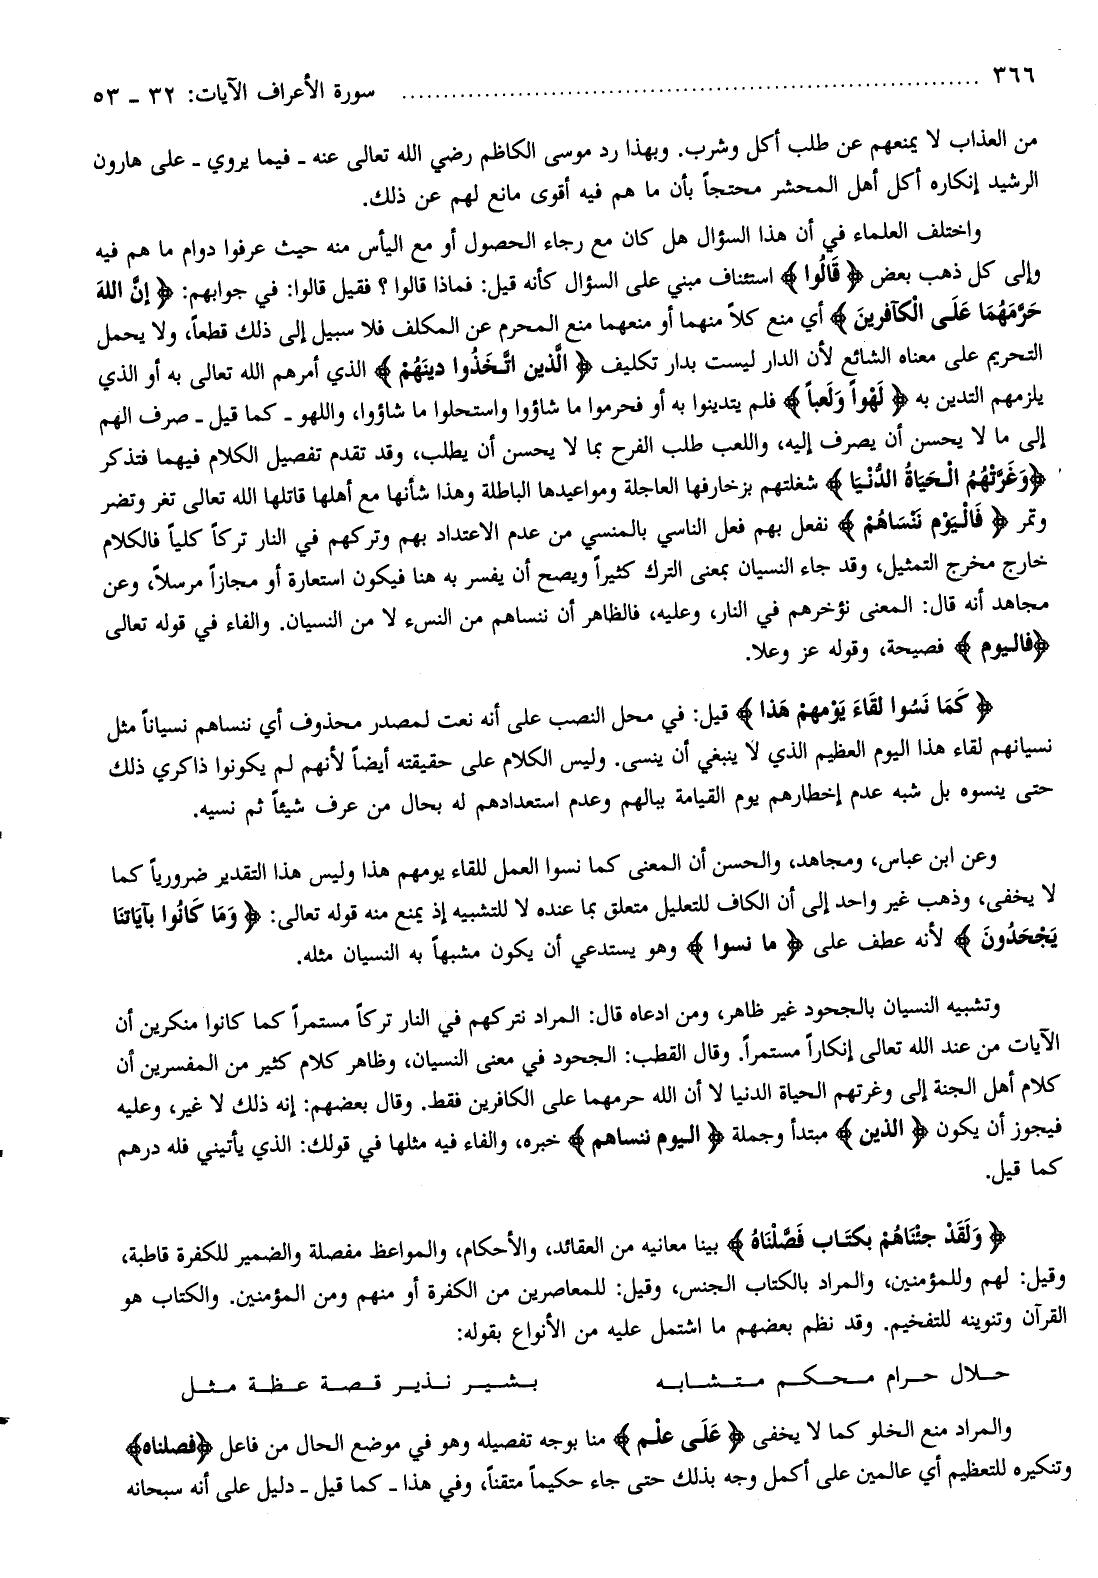 ٣٦٦ ........................................................ سورة الأعراف الآيات: ٣٢ ـ ٥٣
من العذاب لا يمنعهم عن طلب أكل وشرب. وبهذا رد موسى الكاظم رضي الله تعالى عنه ـ فيما يروي ـ على هارون
الرشيد إنكاره أكل أهل المحشر محتجاً بأن ما هم فيه أقوى مانع لهم عن ذلك.
واختلف العلماء في أن هذا السؤال هل كان مع رجاء الحصول أو مع اليأس منه حيث عرفوا دوام ما هم فيه
وإلى كل ذهب بعض ﴿ قَالُوا ﴾ استئناف مبني على السؤال كأنه قيل: فماذا قالوا ؟ فقيل قالوا: في جوابهم: ﴿ إنَّ اللهَ
حَرَّمَهُمَا عَلَـى الْكَآفرينَ ﴾ أي منع كلاً منهما أو منعهما منع المحرم عن المكلف فلا سبيل إلى ذلك قطعاً، ولا يحمل
التحريم على معناه الشائع لأن الدار ليست بدار تكليف ﴿ الَّذين اتَّـخَذُوا دينَهُمْ ﴾ الذي أمرهم الله تعالى به أو الذي
يلزمهم التدين به ﴿ لَهْواً وَلَعباً ﴾ فلم يتدينوا به أو فحرموا ما شاؤوا واستحلوا ما شاؤوا، واللهو ـ كما قيل ـ صرف الهم
إلى ما لا يحسن أن يصرف إليه، واللعب طلب الفرح بما لا يحسن أن يطلب، وقد تقدم تفصيل الكلام فيهما فتذكر
﴿وَغَرَّتْهُمُ الْـحَيَاةُ الدُّنْـيَا ﴾ شغلتهم بزخارفها العاجلة ومواعيدها الباطلة وهذا شأنها مع أهلها قاتلها الله تعالى تغر وتضر
وتمر ﴿ فَالْـيَوْم نَنْسَاهُمْ ﴾ نفعل بهم فعل الناسي بالمنسي من عدم الاعتداد بهم وتركهم في النار تركاً كلياً فالكلام
خارج مخرج التمثيل، وقد جاء النسيان بمعنى الترك كثيراً ويصح أن يفسر به هنا فيكون استعارة أو مجازاً مرسلاً، وعن
مجاهد أنه قال: المعنى نؤخرهم في النار، وعليه، فالظاهر أن ننساهم من النسء لا من النسيان. والفاء في قوله تعالى
﴿فالـيوم ﴾ فصيحة، وقوله عز وعلا.
﴿ كَمَا نَسُوا لقَاءَ يَوْمهمْ هَذا ﴾ قيل: في محل النصب على أنه نعت لمصدر محذوف أي ننساهم نسياناً مثل
نسيانهم لقاء هذا اليوم العظيم الذي لا ينبغي أن ينسى. وليس الكلام على حقيقته أيضاً لأنهم لم يكونوا ذاكري ذلك
حتى ينسوه بل شبه عدم إخطارهم يوم القيامة ببالهم وعدم استعدادهم له بحال من عرف شيئاً ثم نسيه.
وعن ابن عباس، ومجاهد، والحسن أن المعنى كما نسوا العمل للقاء يومهم هذا وليس هذا التقدير ضرورياً كما
لا يخفى، وذهب غير واحد إلى أن الكاف للتعليل متعلق بما عنده لا للتشبيه إذ يمنع منه قوله تعالى: ﴿ وَمَا كَانُوا بآيَاتنَا
يَجْحَدُونَ ﴾ لأنه عطف على ﴿ ما نسوا ﴾ وهو يستدعي أن يكون مشبهاً به النسيان مثله.
وتشبيه النسيان بالجحود غير ظاهر، ومن ادعاه قال: المراد نتركهم في النار تركاً مستمراً كما كانوا منكرين أن
الآيات من عند الله تعالى إنكاراً مستمراً. وقال القطب: الجحود في معنى النسيان، وظاهر كلام كثير من المفسرين أن
كلام أهل الجنة إلى وغرتهم الحياة الدنيا لا أن الله حرمهما على الكافرين فقط. وقال بعضهم: إنه ذلك لا غير، وعليه
فيجوز أن يكون ﴿ الذين ﴾ مبتدأ وجملة ﴿ الـيوم ننساهم ﴾ خبره، والفاء فيه مثلها في قولك: الذي يأتيني فله درهم
كما قيل.
﴿ وَلَقَدْ جئْنَاهُمْ بكتَـاب فَصَّلْنَاهُ ﴾ بينا معانيه من العقائد، والأحكام، والمواعظ مفصلة والضمير للكفرة قاطبة،
وقيل: لهم وللمؤمنين، والمراد بالكتاب الجنس، وقيل: للمعاصرين من الكفرة أو منهم ومن المؤمنين. والكتاب هو
القرآن وتنوينه للتفخيم. وقد نظم بعضهم ما اشتمل عليه من الأنواع بقوله:
حـلال حـرام مـحـكـم مـتـشـابـه بـشـيـر نـذيـر قـصـة عـظـة مـثـل
والمراد منع الخلو كما لا يخفى ﴿ عَلَـى علْـم ﴾ منا بوجه تفصيله وهو في موضع الحال من فاعل ﴿فصلناه﴾
وتنكيره للتعظيم أي عالمين على أكمل وجه بذلك حتى جاء حكيماً متقناً، وفي هذا ـ كما قيل ـ دليل على أنه سبحانه